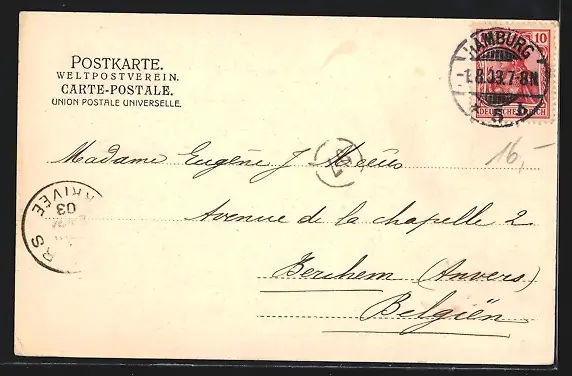 POSTKARTE.
WELTPOSTVEREIN.
CARTE-POSTALE.
UNION POSTALE UNIVERSELLE.
HAMBURG
10
-1.8.03.7-8N.
DEUTSCHES REICH
16,-
Madame Eugène J Meeùs
Avenue de la chapelle 2
Berchem (Anvers)
Belgiën
ARRIVÉE
03
RS